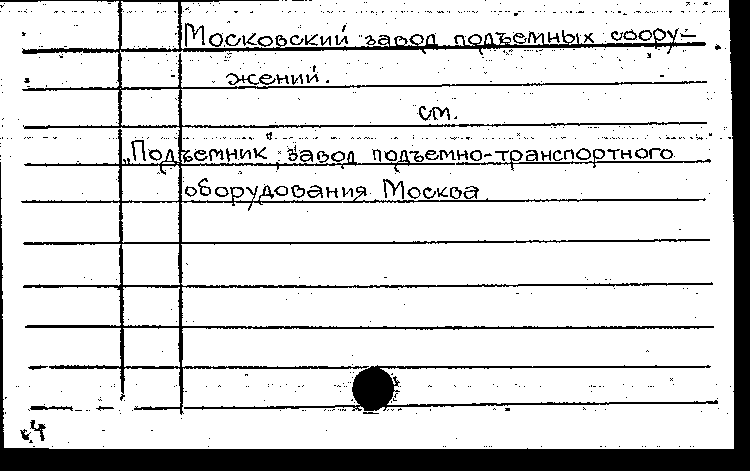 Московский завод подъемных соору-
жений.
см.
„Подъемник“, завод подъемно-транспортного
оборудования Москва